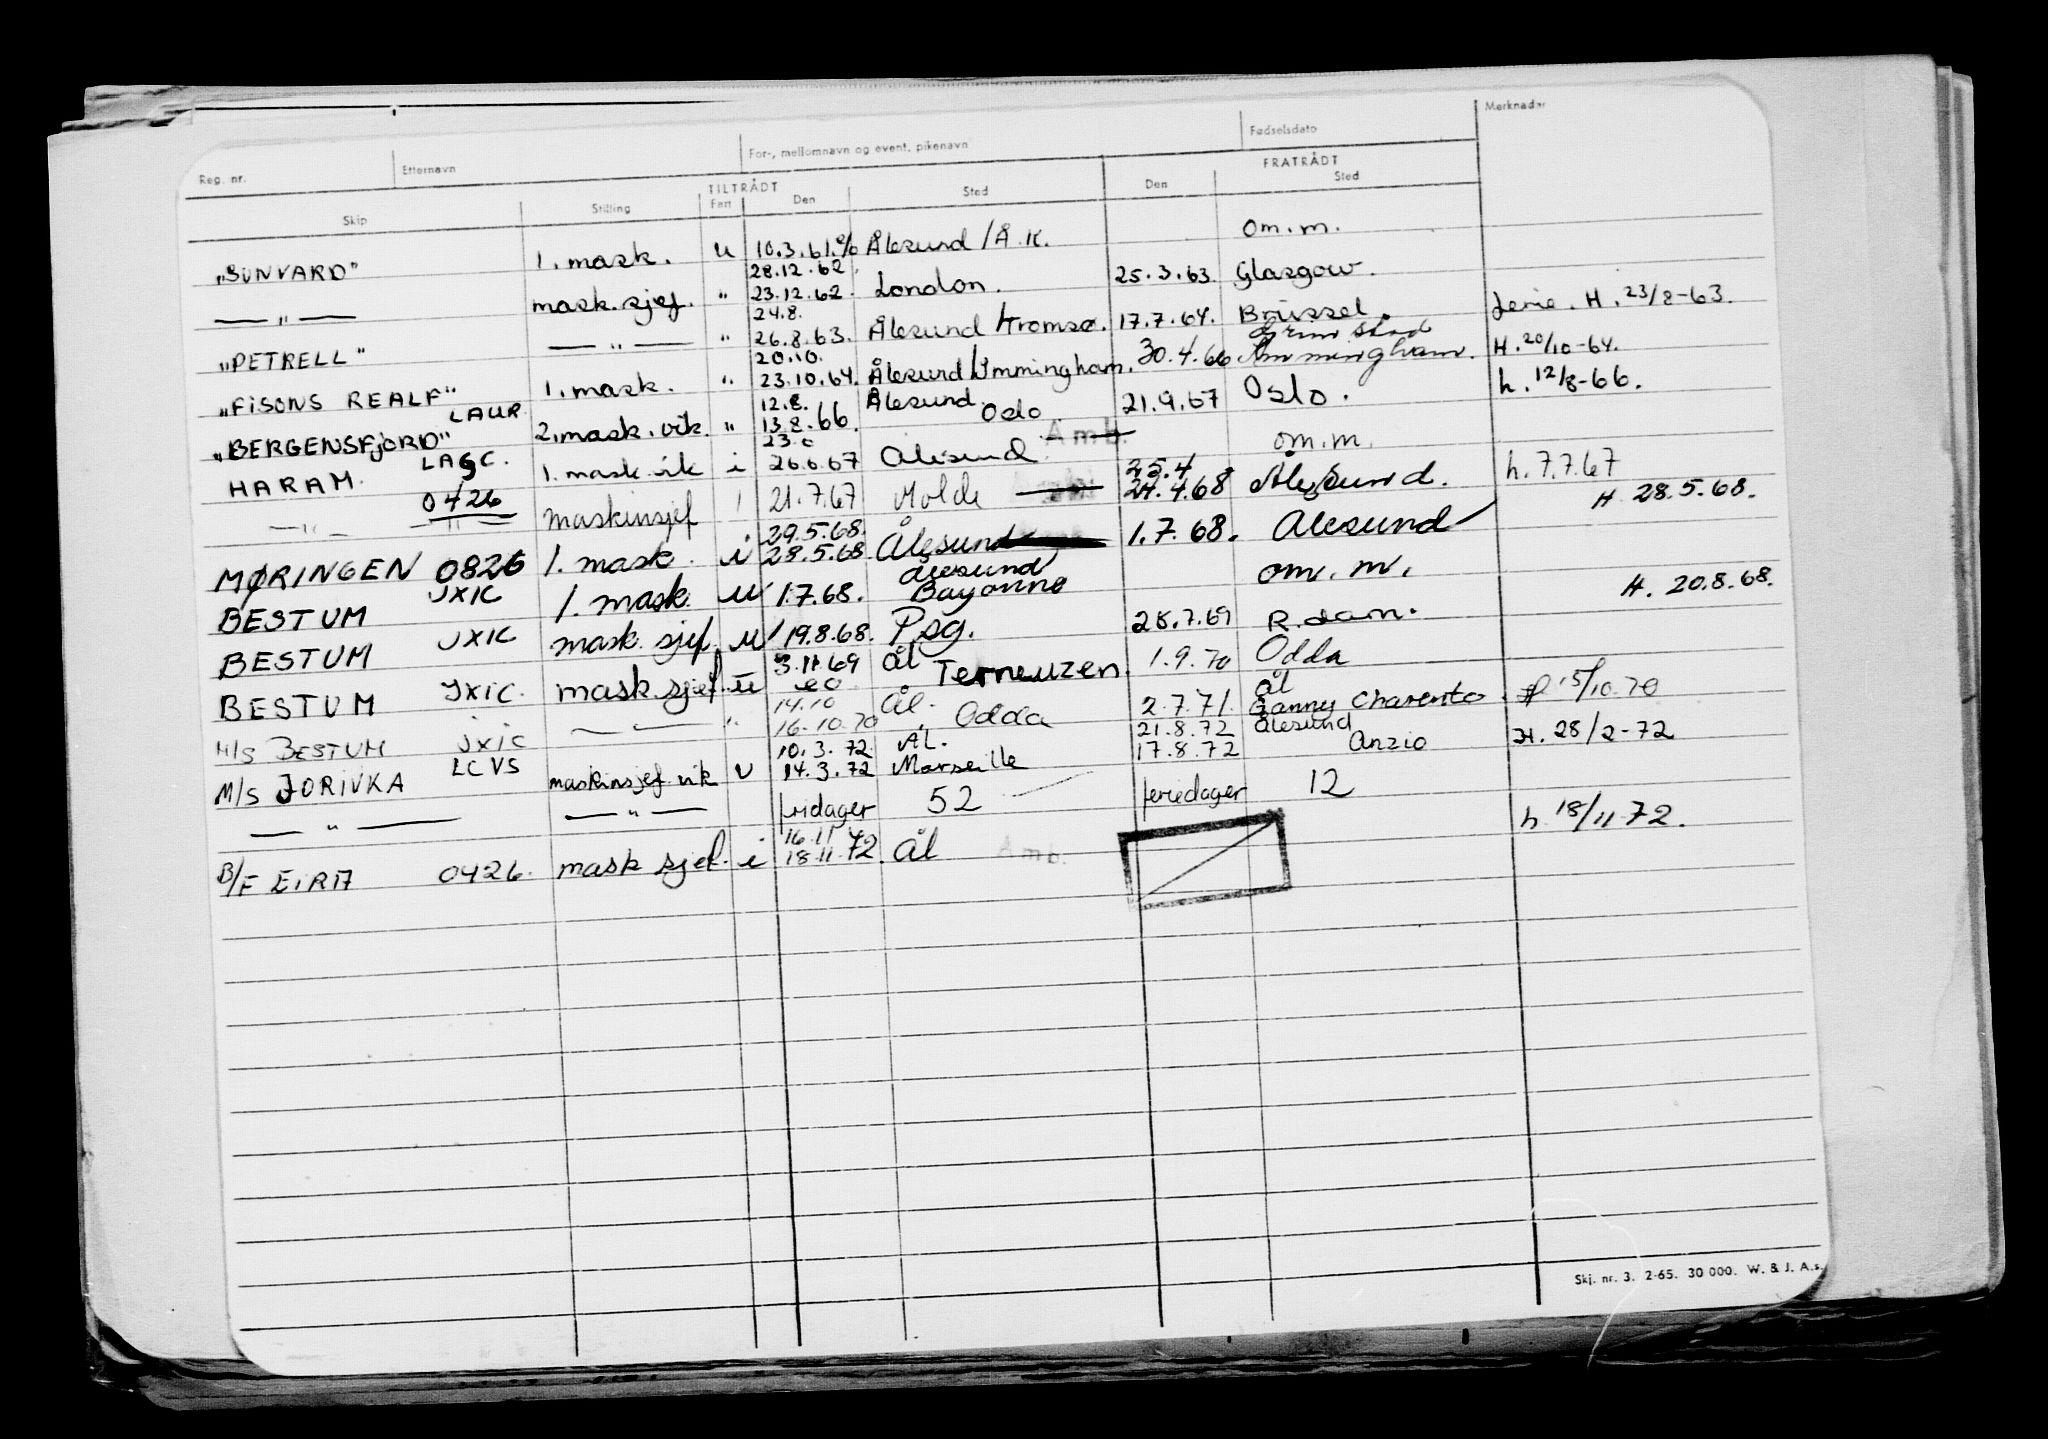 Reg. nr. Etternavn For-, mellomnavn og event. pikenavn Fødselsdato Merknader
TILTRÅDT FRATRÅDT
Skip Stilling Fart Den Sted Den Sted
"SUNVARD" 1. mask. u 10.3.61. % Ålesund / Å.K. om.m.
28.12.62
— " — mask.sjef. " 23.12.62. London. 25.3.63. Glasgow.
24.8.
"PETRELL" — " — " 26.8.63. Ålesund / Tromsø. 17.7.64. Brüssel. Ferie. H. 23/8-63.
20.10. Grimstad
"FISONS REALF" 1. mask. " 23.10.64. Ålesund / Immingham. 30.4.66 Immingham. H. 20/10-64.
LAUR 12.8. Ålesund
"BERGENSFJORD" 2. mask. vik. " 13.8.66. Oslo. 21.9.67 Oslo. h. 12/8-66.
LAGC. 23.6 Amb.
HARAM. 1. mask vik i 26.6.67 Ålesund om.m.
0426 25.4
— " — — " — maskinsjef 21.7.67 Molde 24.4.68 Ålesund. h. 7.7.67
29.5.68. H. 28.5.68.
MØRINGEN 0826 1. mask. i 28.5.68 Ålesund 1.7.68. Ålesund
JXIC Ålesund
BESTUM 1. mask. u 1.7.68. Bayonne om. m.
BESTUM JXIC mask. sjef. u 19.8.68. Psg. 28.7.69 R.dam. H. 20.8.68.
3.11.69 Ål
BESTUM JXIC. mask.sjef. u Terneuzen. 1.9.70 Odda
14.10 Ål. Ål
M/S BESTUM JXIC — — " 16.10.70 Odda 2.7.71. Charente. 15/10.70
10.3.72 ÅL. 21.8.72 Ålesund
M/S JORIVKA LCVS maskinsjef vik u 14.3.72 Marseille 17.8.72 Anzio H. 28/2-72
— " — — " — fridager 52 feriedager 12
16.11
B/F EIRA 0426. mask sjef. i 18.11.72. Ål Amb. h. 18/11 72.
Skj. nr. 3. 2-65. 30 000. W. & J. A.s.